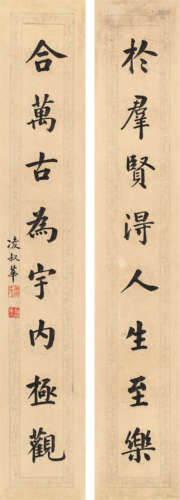 於羣賢淂人生至樂
合萬古為宇内極觀
凌叔華